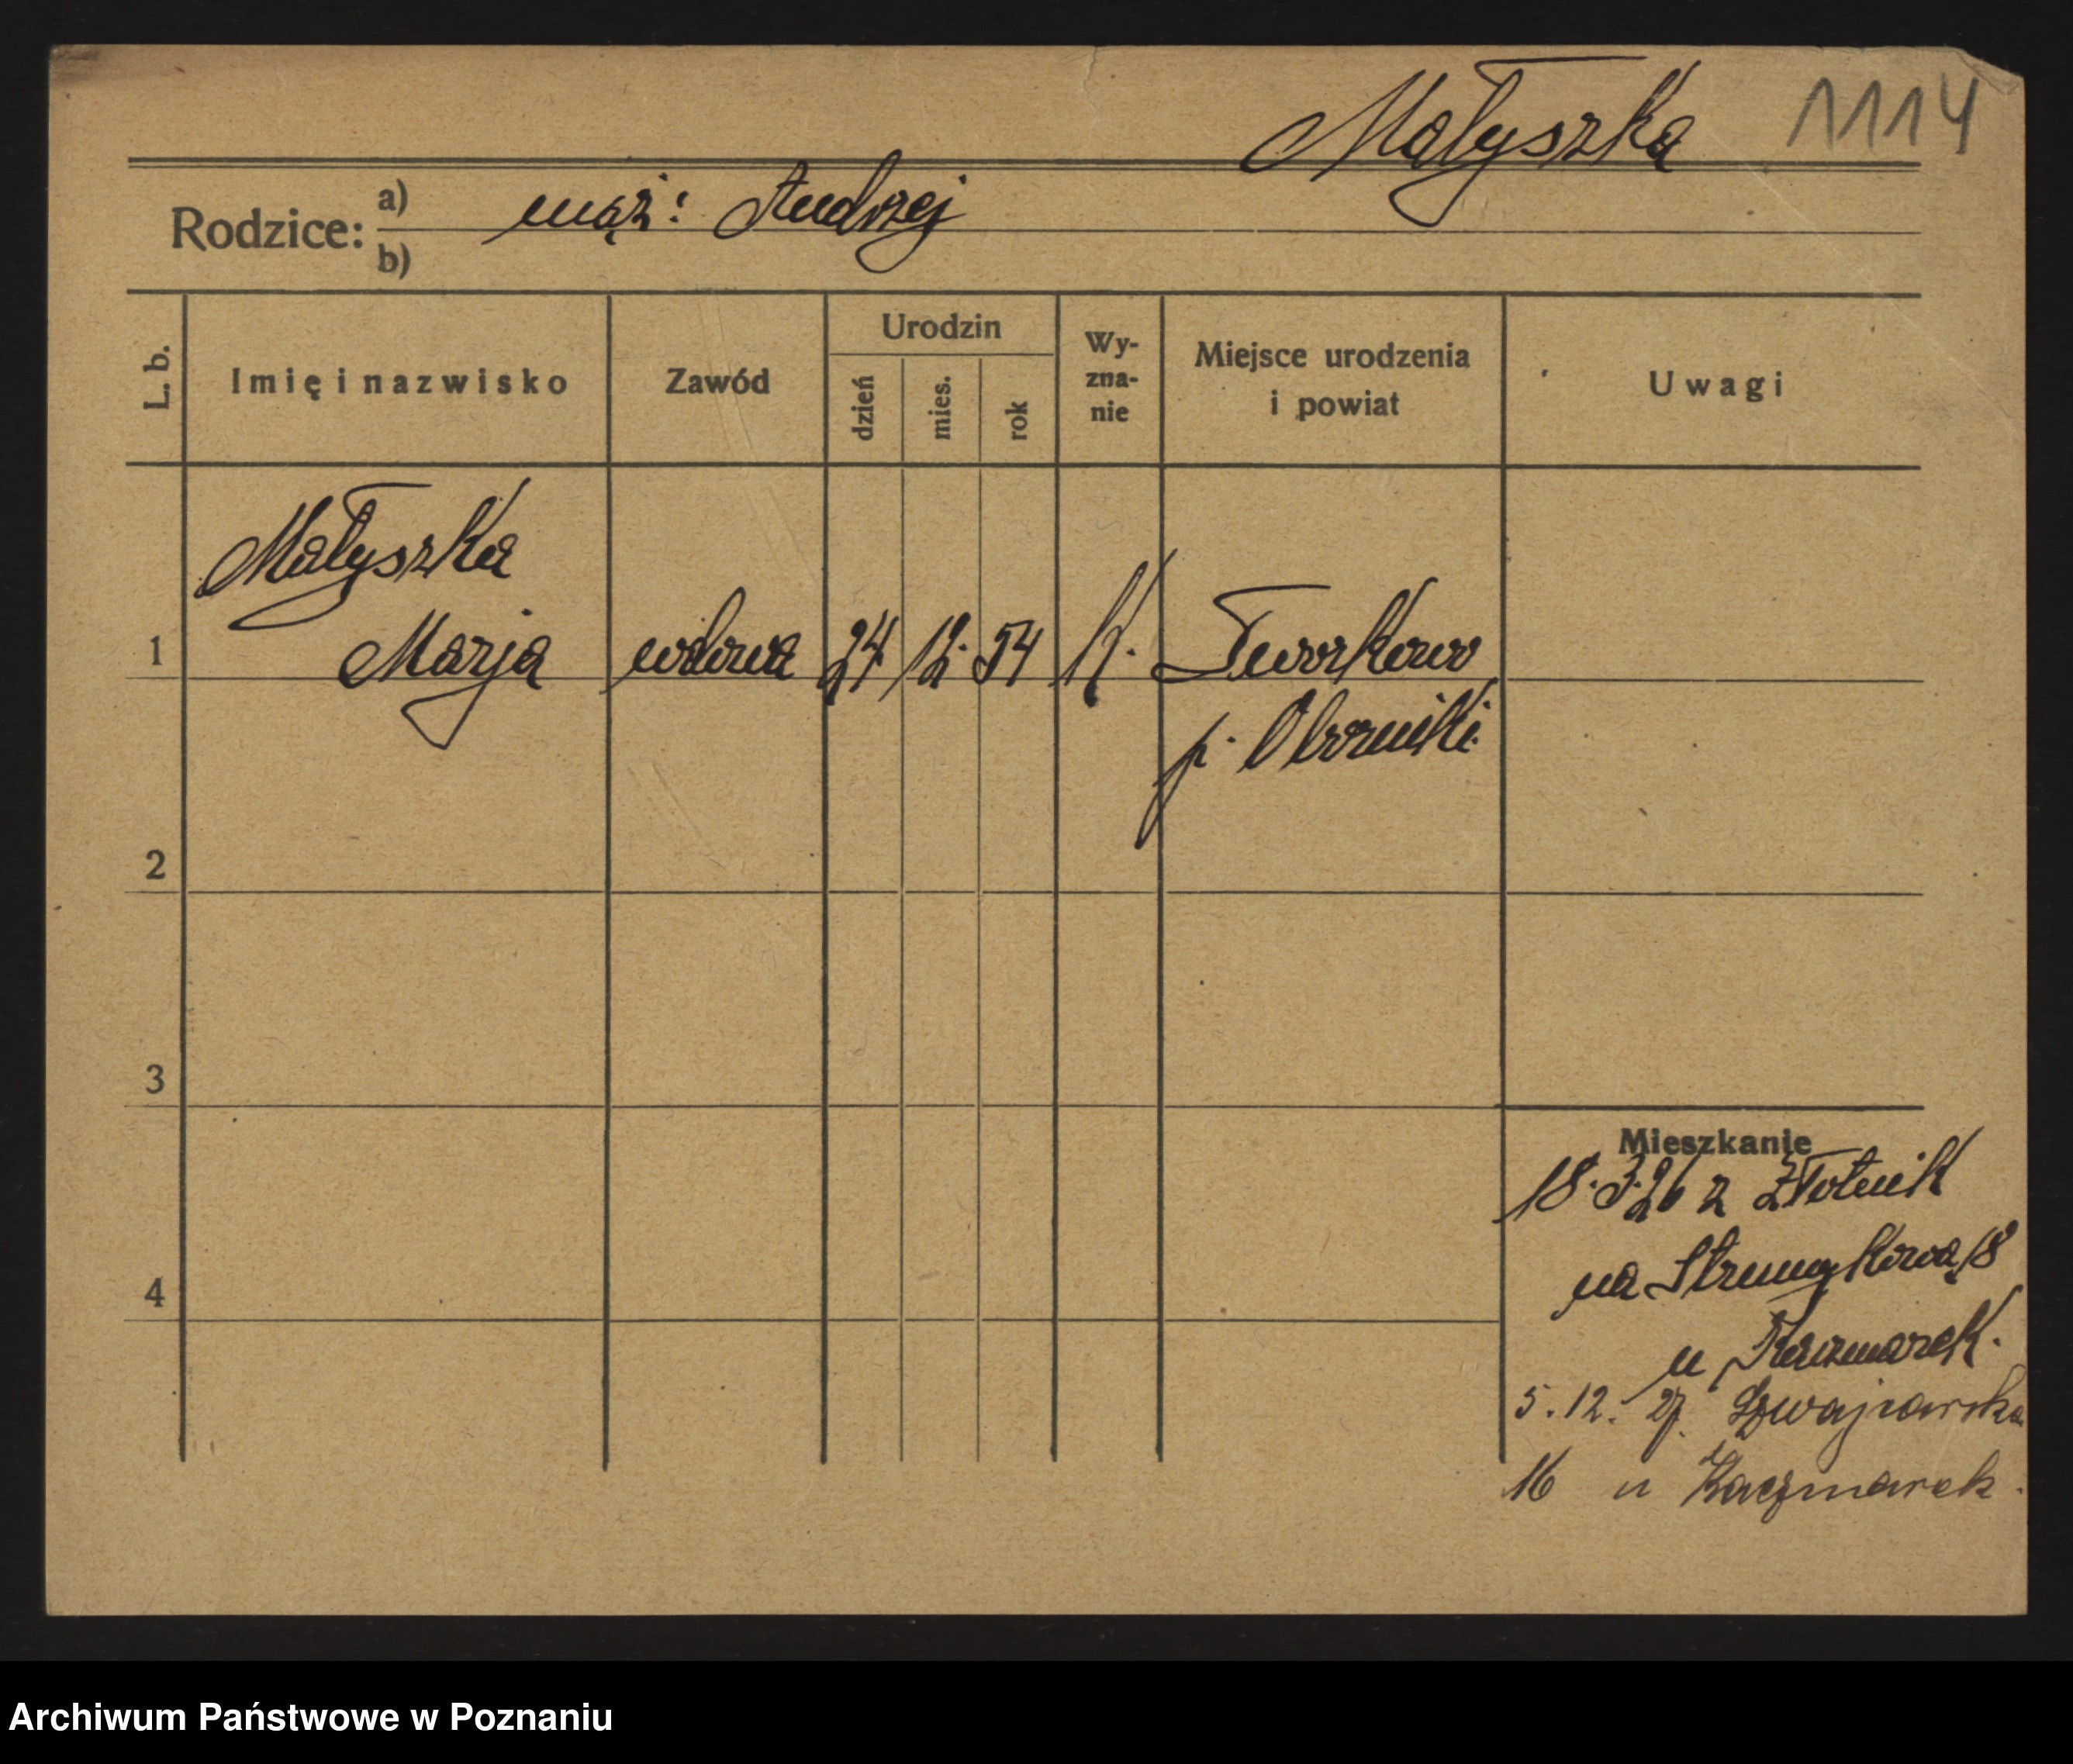 Małyszka 1114
Rodzice: a) mąż: Andrzej
b)
L. b. Imię i nazwisko Zawód Urodzin dzień mies. rok Wy-zna-nie Miejsce urodzenia i powiat Uwagi
Małyszka
1 Marja wdowa 24. 12. 54 K. Tworkowo
p. Oborniki.
2
3
Mieszkanie
18.3.26 z Złotnik
4 na Strumykową 18
u Kaczmarek.
5.12.27. Szwajcarska
16 u Kaczmarek.
Archiwum Państwowe w Poznaniu